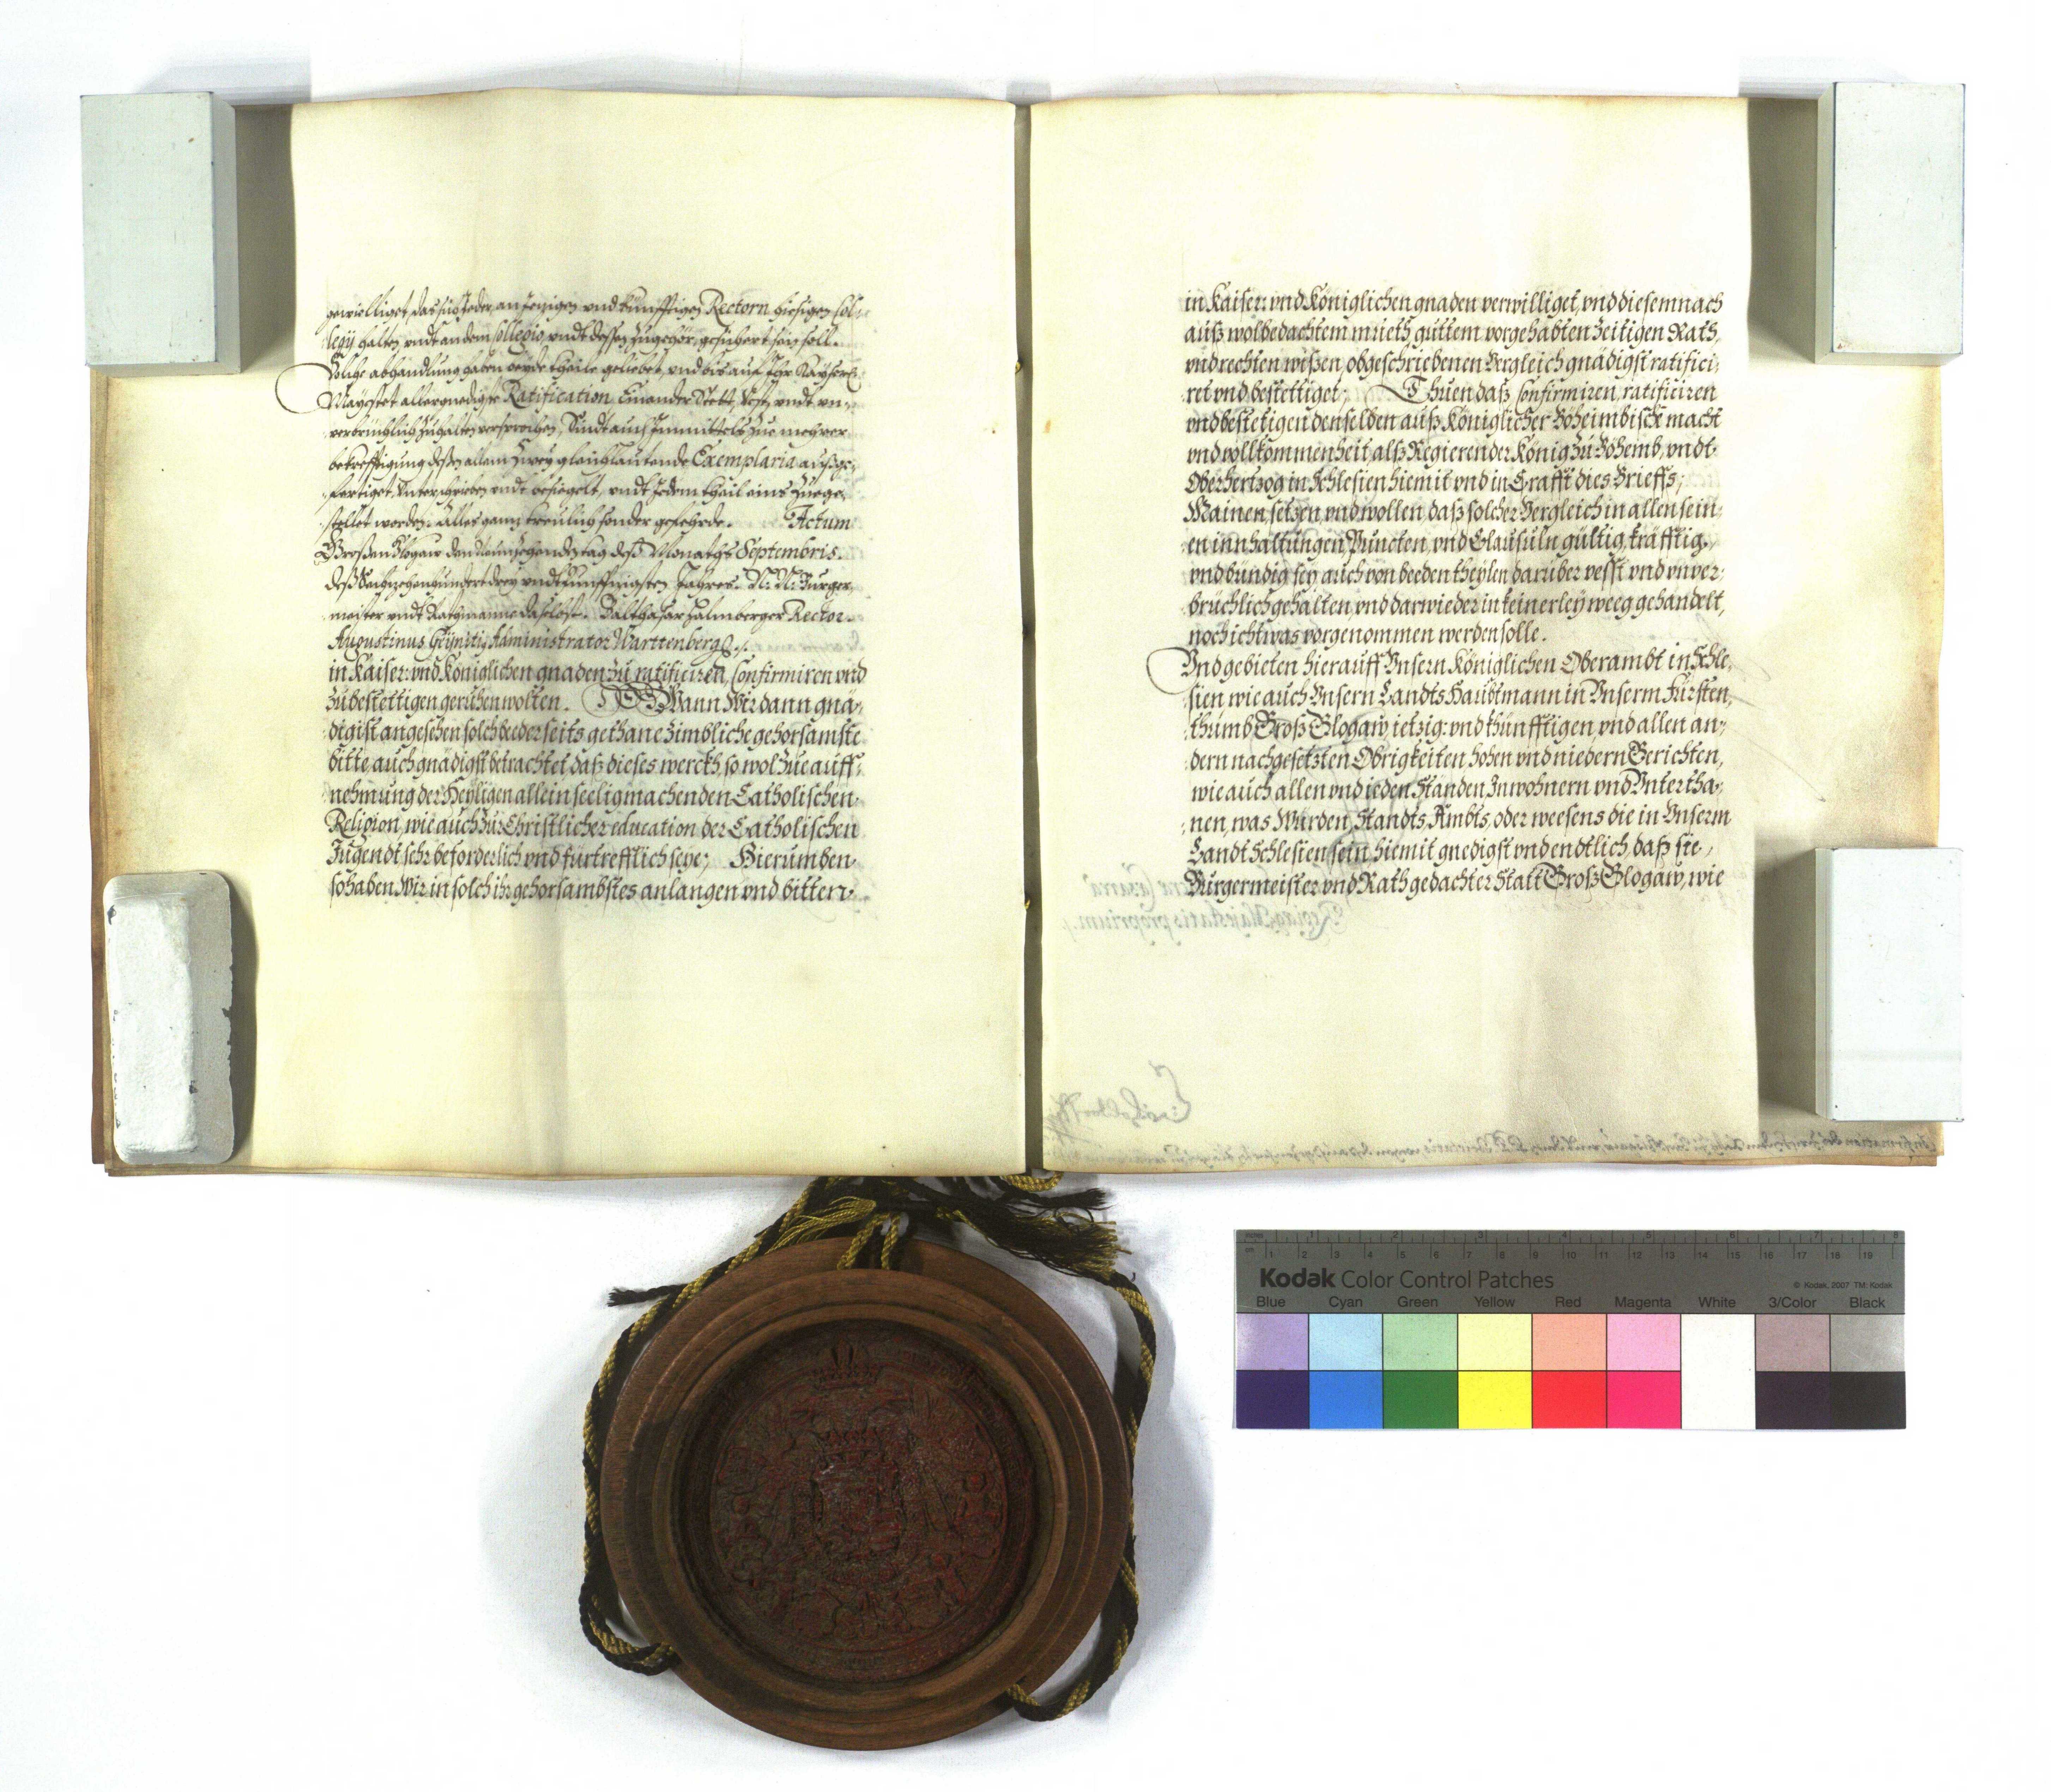 gewilliget, das sich Jeder an Jeczigen und künfftigen Rectorn hiesigen Col-
legij halten undt an dem Collegio, undt dessen Zugehör, gesichert sein soll.
Solche abhandlung haben beyde theile geliebet, und bis auf Ihr Kayserl:
Mayestet allergnedigste Ratification Einander Stett, Vest, undt un-
verbrüchlich Zuhalten versprochen, Sindt auch Inmittels Zue mehrer
bekrefftigung deßen allem Zwey gleichlautende Exemplaria aufge-
fertiget, Unterschrieben undt besiegelt, undt Jedem theil eins Zuege-
stellet worden. Alles gantz treulich sonder gefehrde. Actum
Großen Glogaw den Neunzehenden tag deß Monaths Septembris.
deß Sechzehenhundert drey undt funffzigsten Jahres. N: N: Burger-
meister undt Rathmanne daselbst. Balthasar Halmberger Rector.
Augustinus Heÿnitig Administrator Warttenberg
in Kaiser: und Königlichen gnaden zu ratificiren, Confirmiren und
Zubestettigen geruhen wolten. Wann Wir dann gnä-
digist angesehen solch beederseits gethane zimbliche gehorsamste
bitte auch gnädigst betrachtet daß dieses werckh, so wol Zue auff-
nehmung der Heyligen allein seeligmachenden Catholischen
Religion, wie auch Zur Christlicher education der Catholischen
Jugendt sehr beforderlich und fürtrefflich seye; Hierumben
so haben Wir in solch ihr gehorsambstes anlangen und bitten
in Kaiser: und Königlichen gnaden verwilliget, und diesemnach
auß wolbedachtem mueth, guttem vorgehabten zeitigen Rath,
und rechten wißen, obgeschriebenen Vergleich gnädigst ratifici-
ret und bestettiget; Thuen daß, Confirmiren, ratificiren
und bestetigen denselben auß Königlicher Böheimbischer macht
und vollkommenheit, alß Regierender König Zu Böheimb, undt
Oberhertzog in Schlesien hiemit und in Crafft dies Brieffs;
Mainen setzen, und wollen, daß solcher Vergleich in allen sein-
en innhaltungen Puncten, und Clausuln gültig, kräfftig,
und bundig sey, auch von beeden theylen darüber vesst und unver-
brüchlich gehalten, und darwieder in keinerley weeg gehandelt,
noch ichtwas vorgenommen werden solle.
Und gebieten hierauff Unsern Königlichen Oberambt in Schle-
sien wie auch Unsern Landts Haubtmann in Unserm Fürsten-
thumb Groß Glogaw, ietzig: und khünfftigen, und allen an-
dern nachgesetzten Obrigkeiten hohen und niedern Gerichten,
wie auch allen und ieden Ständen Inwohnern und Untertha-
nen, was Würden, Standts, Ambts, oder weesens die in Unserm
Landt Schlesien sein hiemit gnedigst und endtlich, daß sie
Burgermeister und Rath gedachter Statt Groß Glogaw, wie
Kodak Color Control Patches
© Kodak, 2007 TM: Kodak
Blue Cyan Green Yellow Red Magenta White 3/Color Black